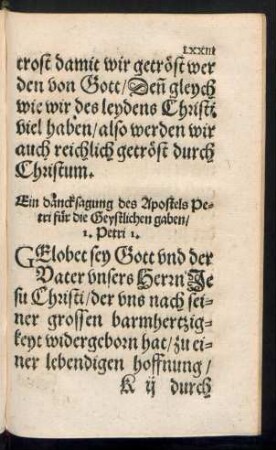 LXXIII
trost damit wir getröst wer
den von Gott/ Deñ gleych
wie wir des leydens Christi
viel haben/ also werden wir
auch reichlich getröst durch
Christum.
Ein dancksagung des Apostels Pe-
tri für die Geystlichen gaben/
1. Petri 1.
GElobet sey Gott vnd der
Vater vnsers Herrn Je
su Christi/ der vns nach sei-
ner grossen barmhertzig-
keyt widergeborn hat/ zu ei-
ner lebendigen hoffnung/
K ij durch